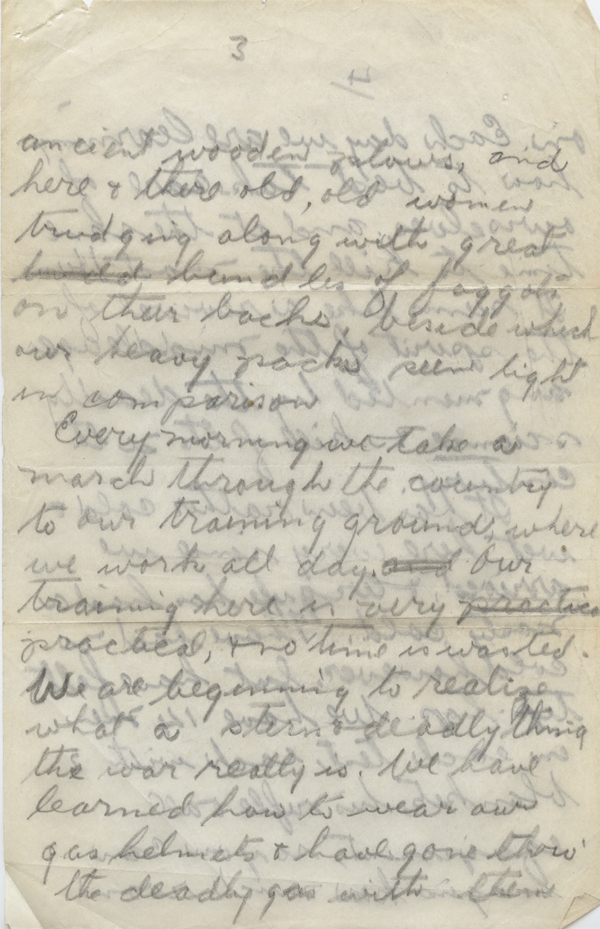 3
ancient wooden plows, and
here & there old, old women
trudging along with great
bundles of faggots
on their backs, beside which
our heavy packs seem light
in comparison
Every morning we take a
march through the country
to our training ground, where
we work all day. and Our
training here is very practica
practical, & no time is wasted.
We are beginning to realize
what a stern & deadly thing
the war really is. We have
learned how to wear our
gas helmets & have gone thro'
the deadly gas with them